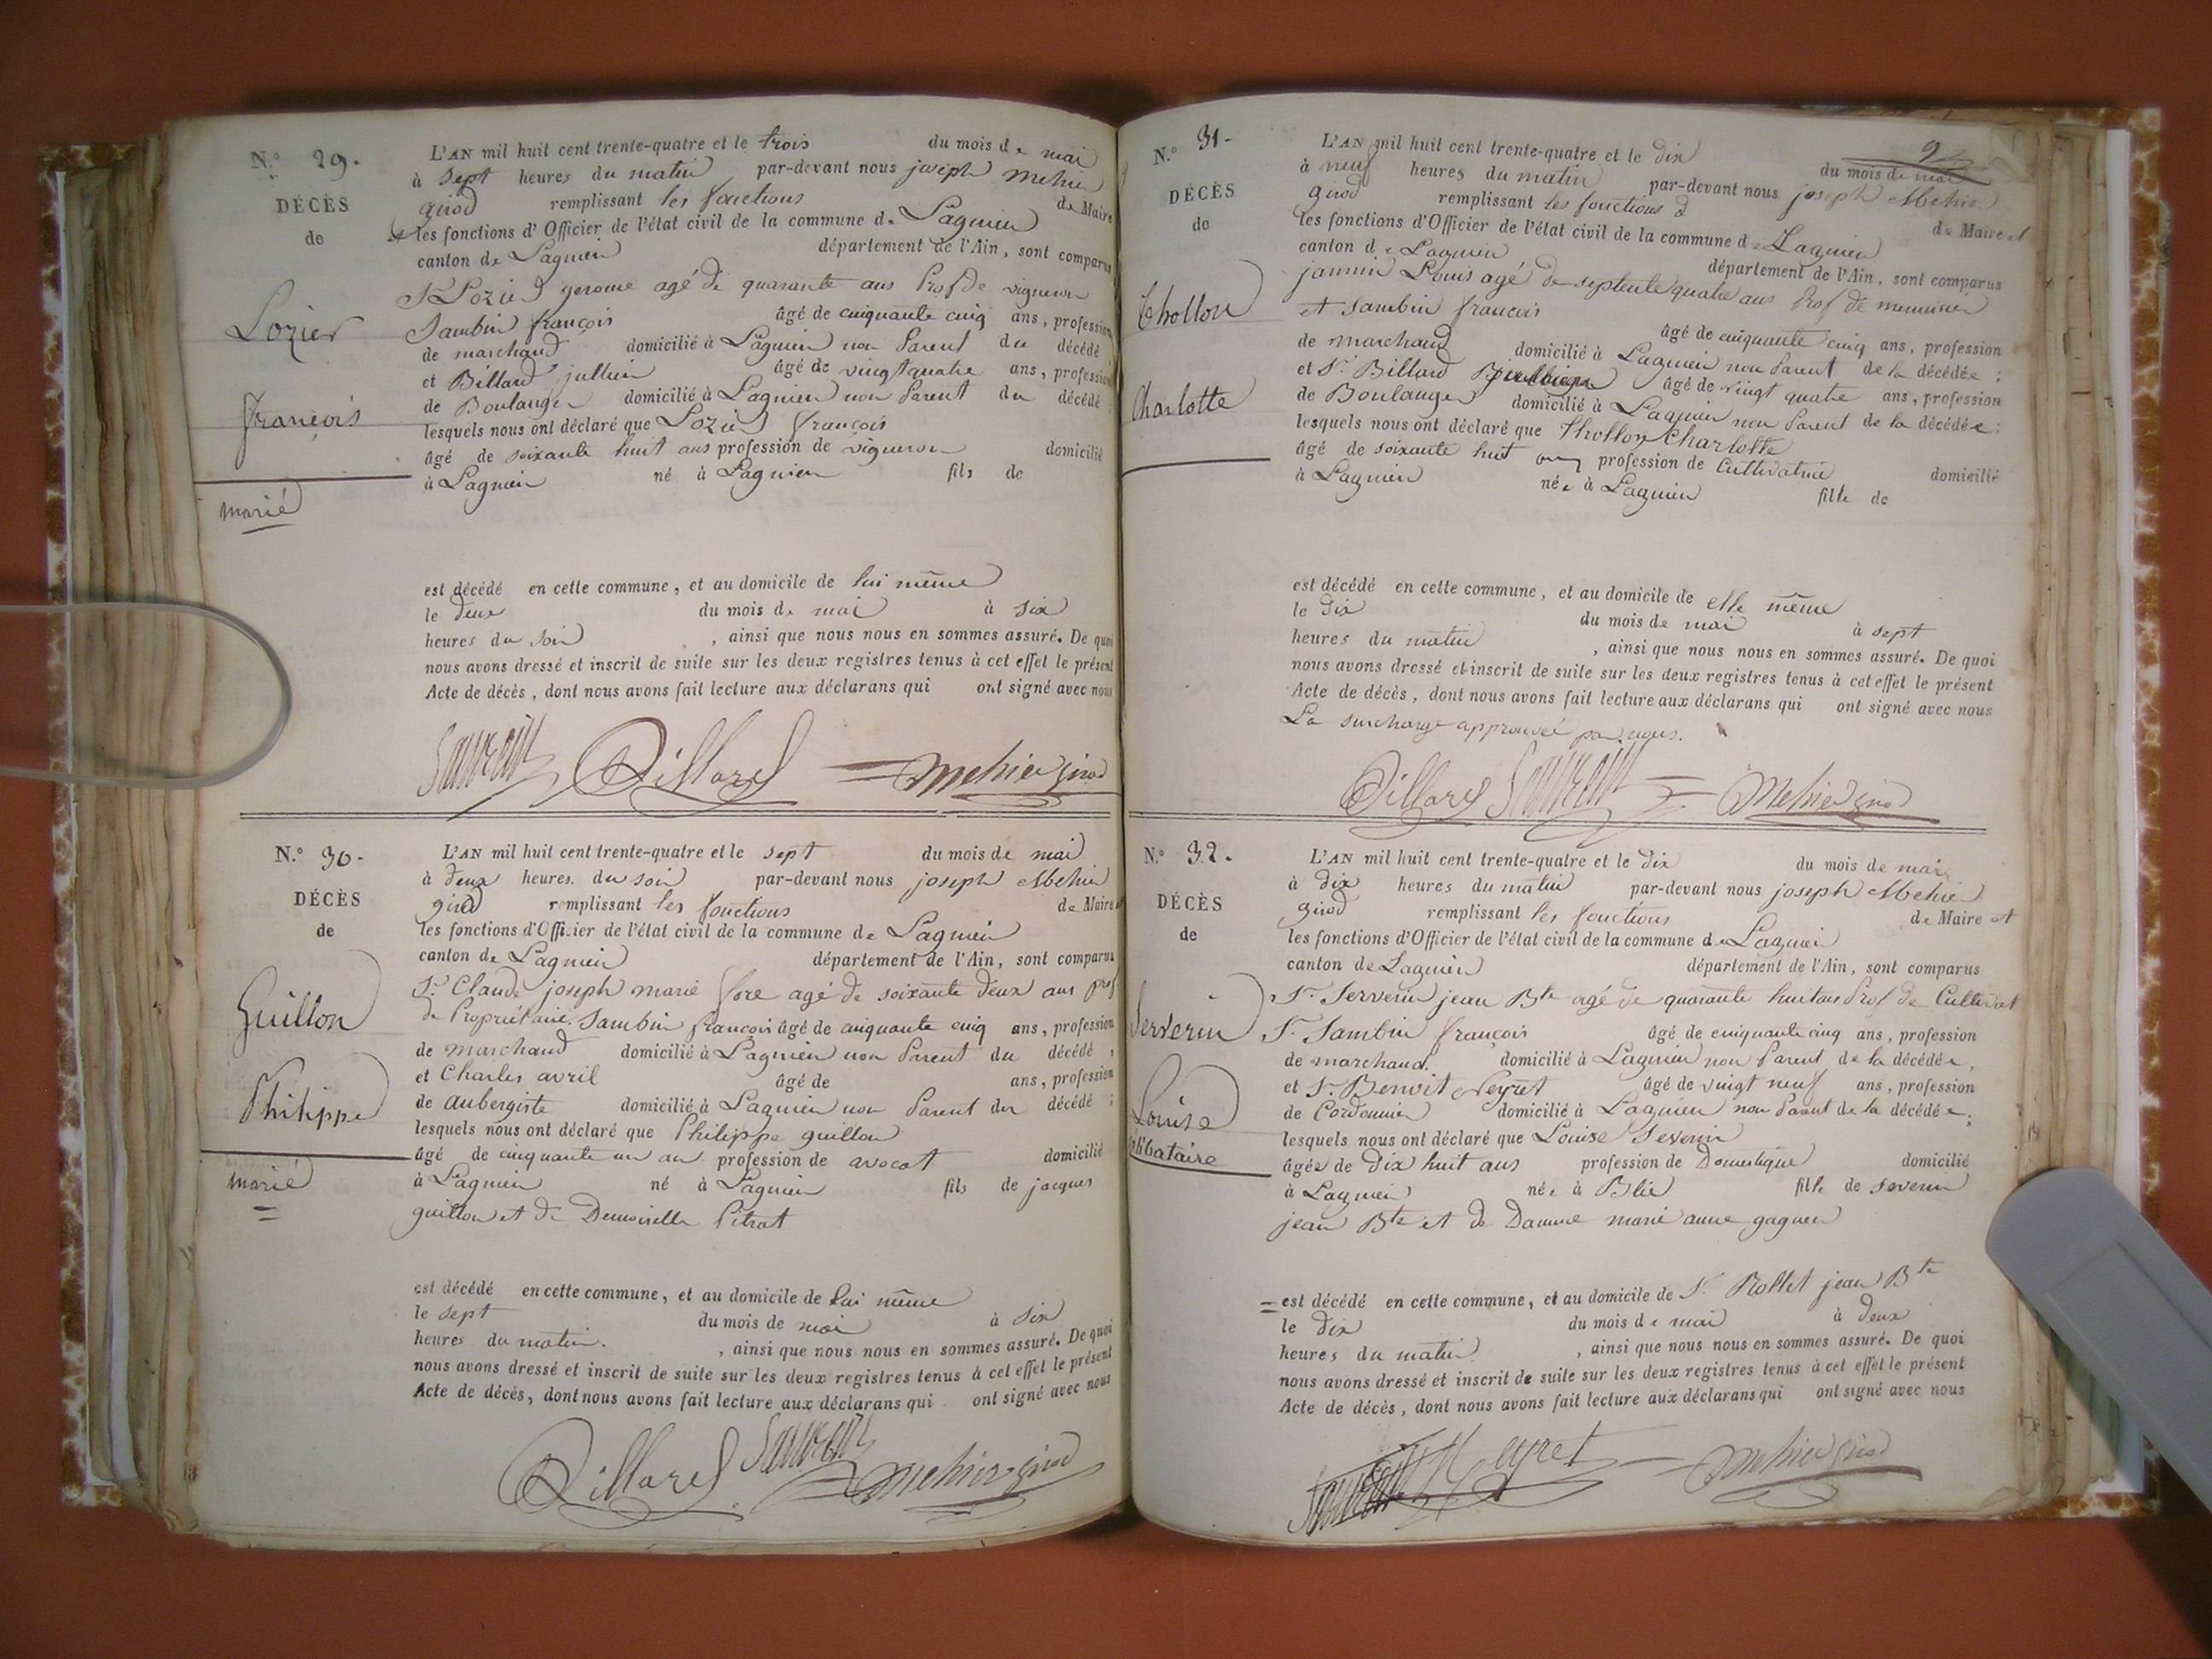 N.° 29.
DÉCÈS
de
Lozier
François
marié
L'AN mil huit cent trente-quatre et le trois du mois de mai
à sept heures du matin par-devant nous joseph Mehier
girod remplissant les fonctions de Maire
et les fonctions d'Officier de l'état civil de la commune de Lagnieu
canton de Lagnieu département de l'Ain, sont comparus
Sr Lozier gerome agé de quarante ans Prof de vigneron
Sambin françois âgé de cinquante cinq ans, profession
de marchand domicilié à Lagnieu non Parent du décédé
et Billard jullien âgé de vingt quatre ans, profession
de Boulanger domicilié à Lagnieu non Parent du décédé ;
lesquels nous ont déclaré que Lozier françois
âgé de soixante huit ans profession de vigneron domicilié
à Lagnieu né à Lagnieu fils de
est décédé en cette commune, et au domicile de lui même
le deux du mois de mai à six
heures du soir , ainsi que nous nous en sommes assuré. De quoi
nous avons dressé et inscrit de suite sur les deux registres tenus à cet effet le présent
Acte de décès, dont nous avons fait lecture aux déclarans qui ont signé avec nous
Billard Mehier girod
N.° 30.
DÉCÈS
de
Guillon
Philippe
marié
L'AN mil huit cent trente-quatre et le sept du mois de mai
à deux heures du soir par-devant nous joseph Mehier
girod remplissant les fonctions de Maire et
les fonctions d'Officier de l'état civil de la commune de Lagnieu
canton de Lagnieu département de l'Ain, sont comparus
Sr Claude joseph marie fore agé de soixante deux ans prof
de Propriétaire. Sambin françois âgé de cinquante cinq ans, profession
de marchand domicilié à Lagnieu non Parent du décédé ,
et Charles avril âgé de ans, profession
de aubergiste domicilié à Lagnieu non Parent du décédé ;
lesquels nous ont déclaré que Philippe guillon
âgé de cinquante un an profession de avocat domicilié
à Lagnieu né à Lagnieu fils de jacques
guillon et de Demoiselle Pitrat
est décédé en cette commune, et au domicile de lui même
le sept du mois de mai à six
heures du matin. , ainsi que nous nous en sommes assuré. De quoi
nous avons dressé et inscrit de suite sur les deux registres tenus à cet effet le présent
Acte de décès, dont nous avons fait lecture aux déclarans qui ont signé avec nous
Billard Mehier girod
9
N.° 31.
DÉCÈS
de
Thollon
Charlotte
L'AN mil huit cent trente-quatre et le dix du mois de mai
à neuf heures du matin par-devant nous joseph Mehier
girod remplissant les fonctions d de Maire et
les fonctions d'Officier de l'état civil de la commune de Lagnieu
canton de Lagnieu département de l'Ain, sont comparus
jannin Louis agé de septente quatre ans Prof de menuisier
et Sambin françois âgé de cinquante cinq ans, profession
de marchand domicilié à Lagnieu non Parent de la décédée ;
et Sr Billard âgé de vingt quatre ans, profession
de Boulanger domicilié à Lagnieu non Parent de la décédée ;
lesquels nous ont déclaré que Thollon Charlotte
âgé de soixante huit ans profession de Cultivatrice domicilié
à Lagnieu née à Lagnieu fille de
est décédé en cette commune, et au domicile de elle même
le dix du mois de mai à sept
heures du matin , ainsi que nous nous en sommes assuré. De quoi
nous avons dressé et inscrit de suite sur les deux registres tenus à cet effet le présent
Acte de décès, dont nous avons fait lecture aux déclarans qui ont signé avec nous
La surcharge approuvée par nous.
Billard Mehier girod
N.° 32.
DÉCÈS
de
Serverin
Louise
célibataire
L'AN mil huit cent trente-quatre et le dix du mois de mai
à dix heures du matin par-devant nous joseph Mehier
girod remplissant les fonctions de Maire et
les fonctions d'Officier de l'état civil de la commune de Lagnieu
canton de Lagnieu département de l'Ain, sont comparus
Sr Serverin jean Bte agé de quarante huit ans Prof de Cultivat
Sr Sambin françois âgé de cinquante cinq ans, profession
de marchand. domicilié à Lagnieu non Parent de la décédée,
et Sr Benoit Neyret âgé de vingt neuf ans, profession
de Cordonnier domicilié à Lagnieu non Parent de la décédée ;
lesquels nous ont déclaré que Louise Severin
âgée de dix huit ans profession de Domestique domicilié
à Lagnieu née à Blie fille de severin
jean Bte et de Damme marie anne gagneu
est décédé en cette commune, et au domicile de Sr Rollet jean Bte
le dix du mois de mai à deux
heures du matin , ainsi que nous nous en sommes assuré. De quoi
nous avons dressé et inscrit de suite sur les deux registres tenus à cet effet le présent
Acte de décès, dont nous avons fait lecture aux déclarans qui ont signé avec nous
Neyret Mehier girod